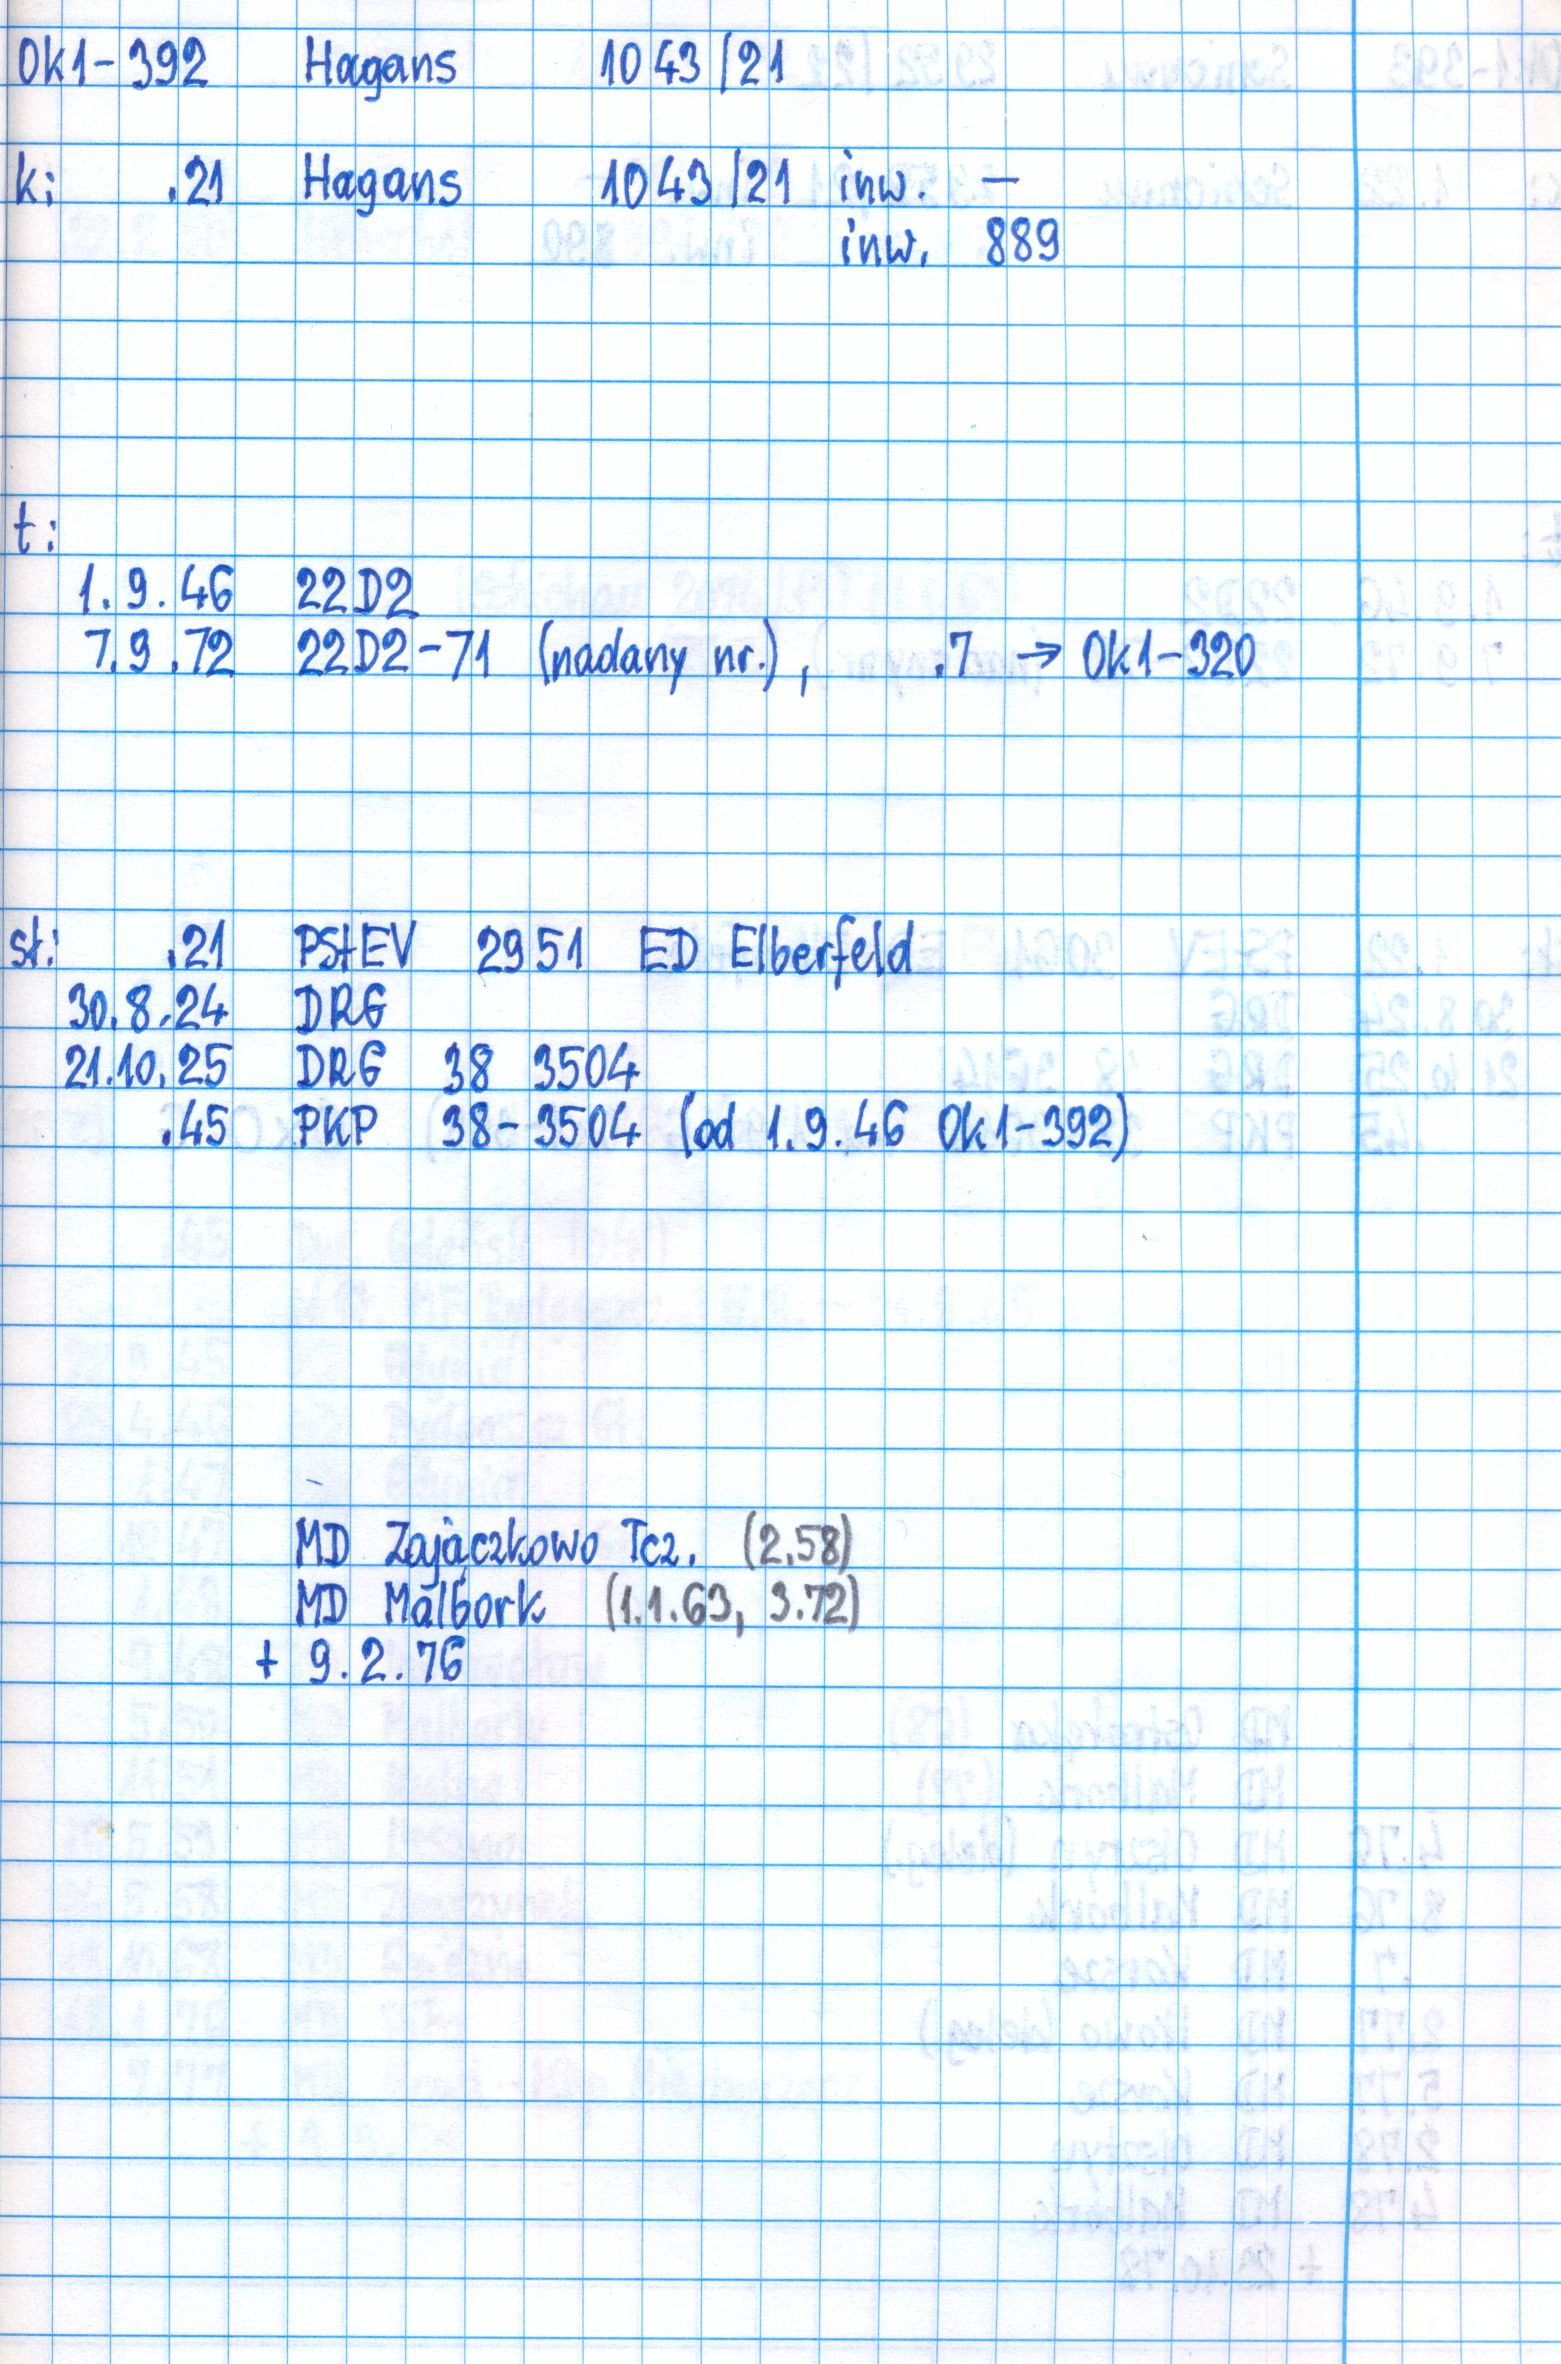 Ok1-392 Hagans 1043/21
k: .21 Hagans 1043/21 inw. —
inw. 889
t:
1.9.46 22D2
7.9.72 22D2-71 (nadany nr.), .7 → Ok1-320
st: .21 PStEV 2951 ED Elberfeld
30.8.24 DRG
21.10.25 DRG 38 3504
.45 PKP 38-3504 (od 1.9.46 Ok1-392)
MD Zajączkowo Tcz. (2.58)
MD Malbork (1.1.63, 3.72)
+ 9.2.76